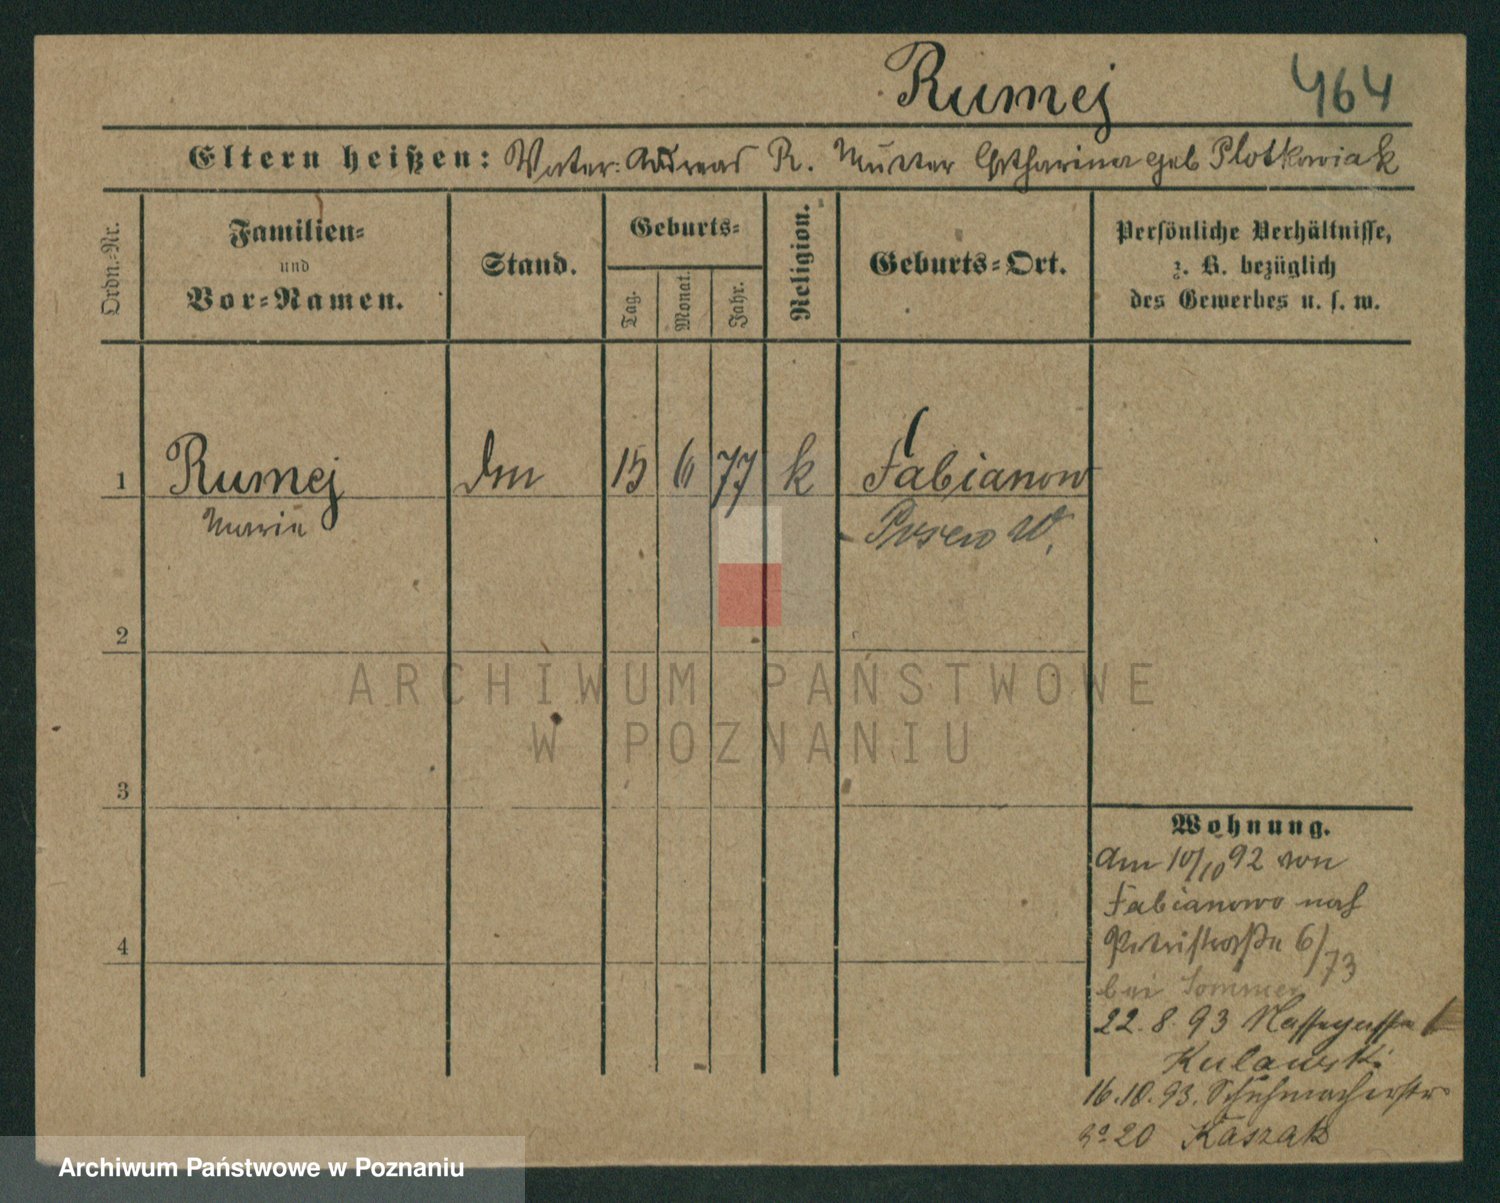 Rumej 464
Eltern heißen: Vater: Andreas R. Mutter Catharina geb Plotkowiak
Ordn.-Nr.
Familien-
und
Vor-Namen.
Stand.
Geburts-
Tag.
Monat.
Jahr.
Religion.
Geburts-Ort.
Persönliche Verhältnisse,
z. B. bezüglich
des Gewerbes u. s. w.
1 Rumej 15 6 77 k Fabianowo
Marie Posen W.
2
3
4
Wohnung.
Am 10/10 92 von
Fabianowo nach
Petristraße 6/73
bei Sommer
22. 8. 93 Nassegasse
Kulawski
16.10.93. Schuhmacherstr
20 Kaszak
ARCHIWUM PAŃSTWOWE
W POZNANIU
Archiwum Państwowe w Poznaniu